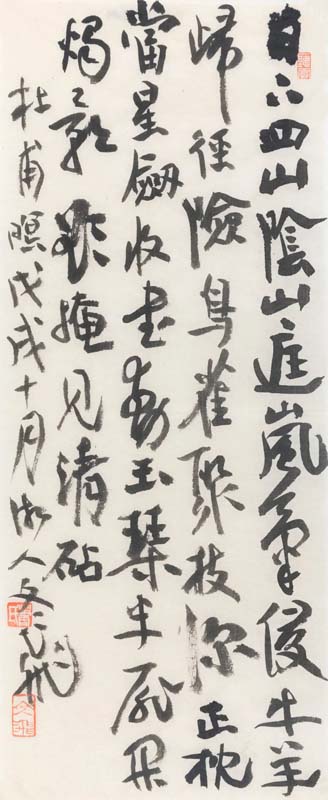 日下四山陰山庭嵐氣侵牛羊
歸徑險鳥雀聚枝深正枕
當星劍收書動玉琴半扉開
燭影欲掩見清砧
杜甫暝戊戌十月湘人文飛